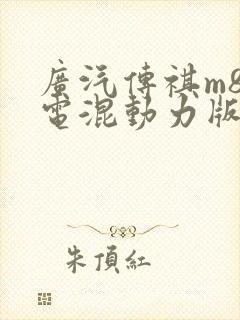 廣汽傳祺m8
電混動力版
朱頂紅